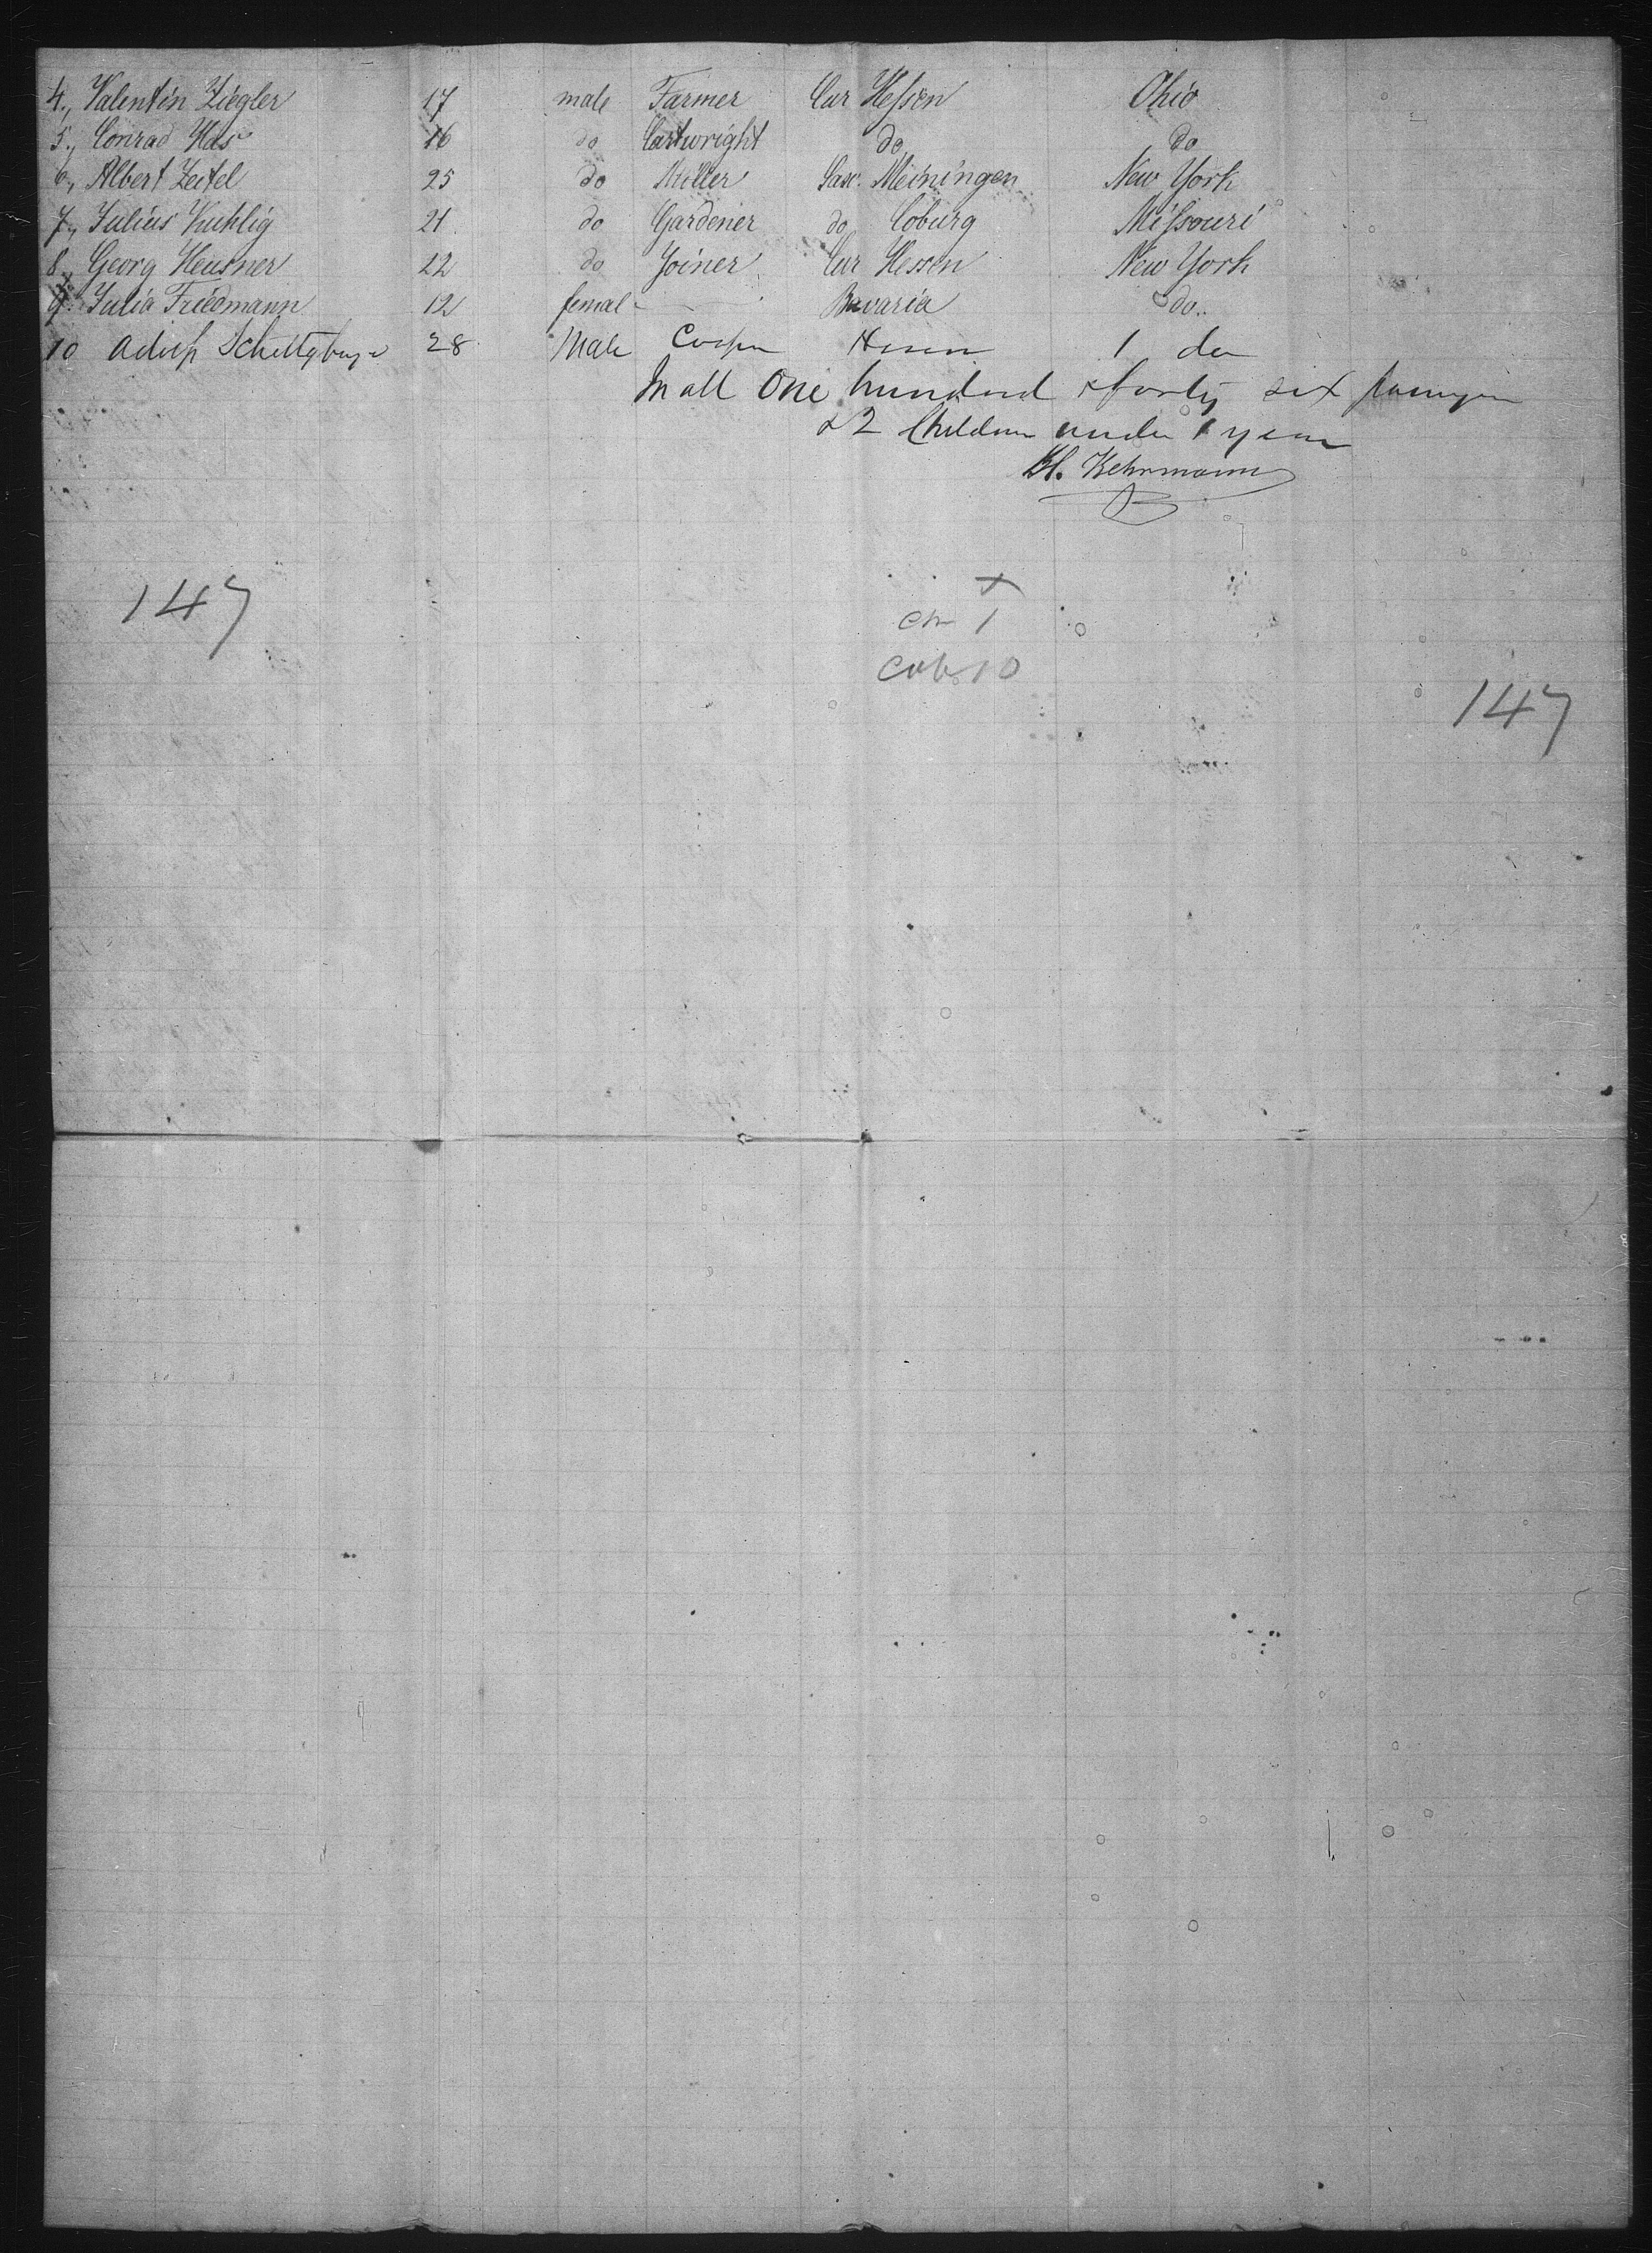 4., Valentin Ziegler 17 male Farmer Cur Hessen Ohio
5., Conrad Has 16 do Cartwright do do
6., Albert Zeitel 25 do Müller Sax. Meiningen New York
7., Julius Kuhlig 21. do Gardener do Coburg Missouri
8., Georg Heusner 22 do Joiner Cur Hessen New York
9. Julia Friedmann 12 femal - Bavaria do..
10 Adolf 28 Male Cooper Hessen 1 do
In all One hundred & forty six passengers
& 2 Children under 1 year
H. Wehrmann
147
x
ch 1
cab. 10
147